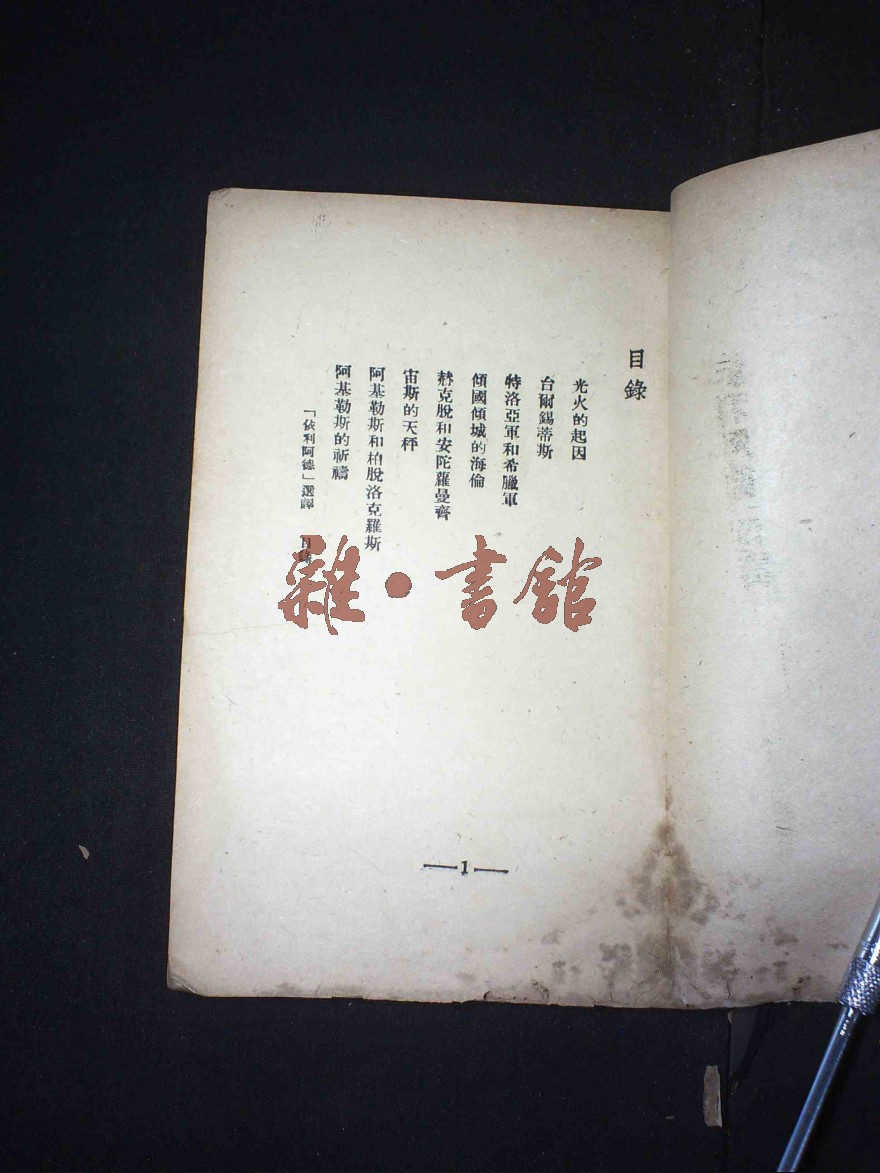 目錄
光火的起因
台爾錫蒂斯
特洛亞軍和希臘軍
傾國傾城的海倫
赫克脫和安陀羅曼齊
宙斯的天秤
阿基勒斯和柏脫洛克羅斯
阿基勒斯的祈禱
「依利阿德」選譯 目錄
雜·書館
—1—